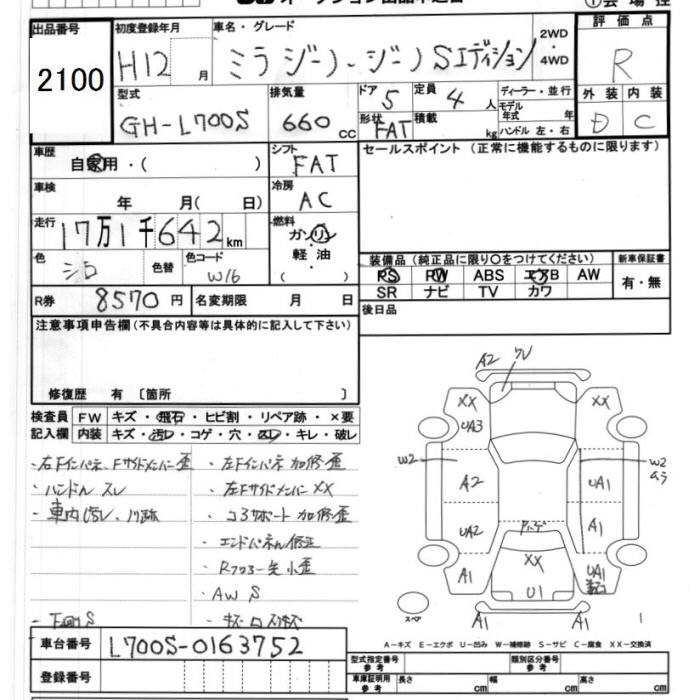 出品番号 初度登録年月 車名・グレード 2WD ・ 4WD 評価点
2100 H12 月 ミラジーノ・ジーノSエディション R
型式 排気量 ドア 定員 ディーラー・並行 外装 内装
GH-L700S 660 cc 5 4 人 モデル年式 年 D C
形状 FAT 積載 kg ハンドル 左・右
車歴 自家用・( ) シフト FAT セールスポイント (正常に機能するものに限ります)
車検 年 月( 日) 冷房 AC
走行 17万1千642 km 燃料 ガソリン ・ 軽油 ( )
色 シロ 色替 色コード W16
装備品 (純正品に限り○をつけてください) 新車保証書
PS PW ABS エアB AW 有・無
SR ナビ TV カワ
R券 8570 円 名変期限 月 日 後日品
注意事項申告欄 (不具合内容等は具体的に記入して下さい)
修復歴 有 〔箇所 〕
検査員 FW キズ・飛石・ヒビ割・リペア跡・×要
記入欄 内装 キズ・汚レ・コゲ・穴・スレ・キレ・破レ
・右Fインパネ、Fサイドメンバー歪 ・左Fインパネ加修歪
・ハンドルスレ ・左FサイドメンバーXX
・車内汚レ、 ・コアサポート加修歪
・エンドパネル修正
・Rフロアー先小歪
・AW S
・下回りS
A2 XX XX UA3 W2 W2 A2 UA1 UA2 A1 XX A1 U1 UA1 A1 A1
スペア 1
A-キズ E-エクボ U-凹み W-補修跡 S-サビ C-腐食 XX-交換済
車台番号 L700S-0163752 型式指定番号 参考 類別区分番号 参考
登録番号 車庫証明用 参考 長さ cm 幅 cm 高さ cm